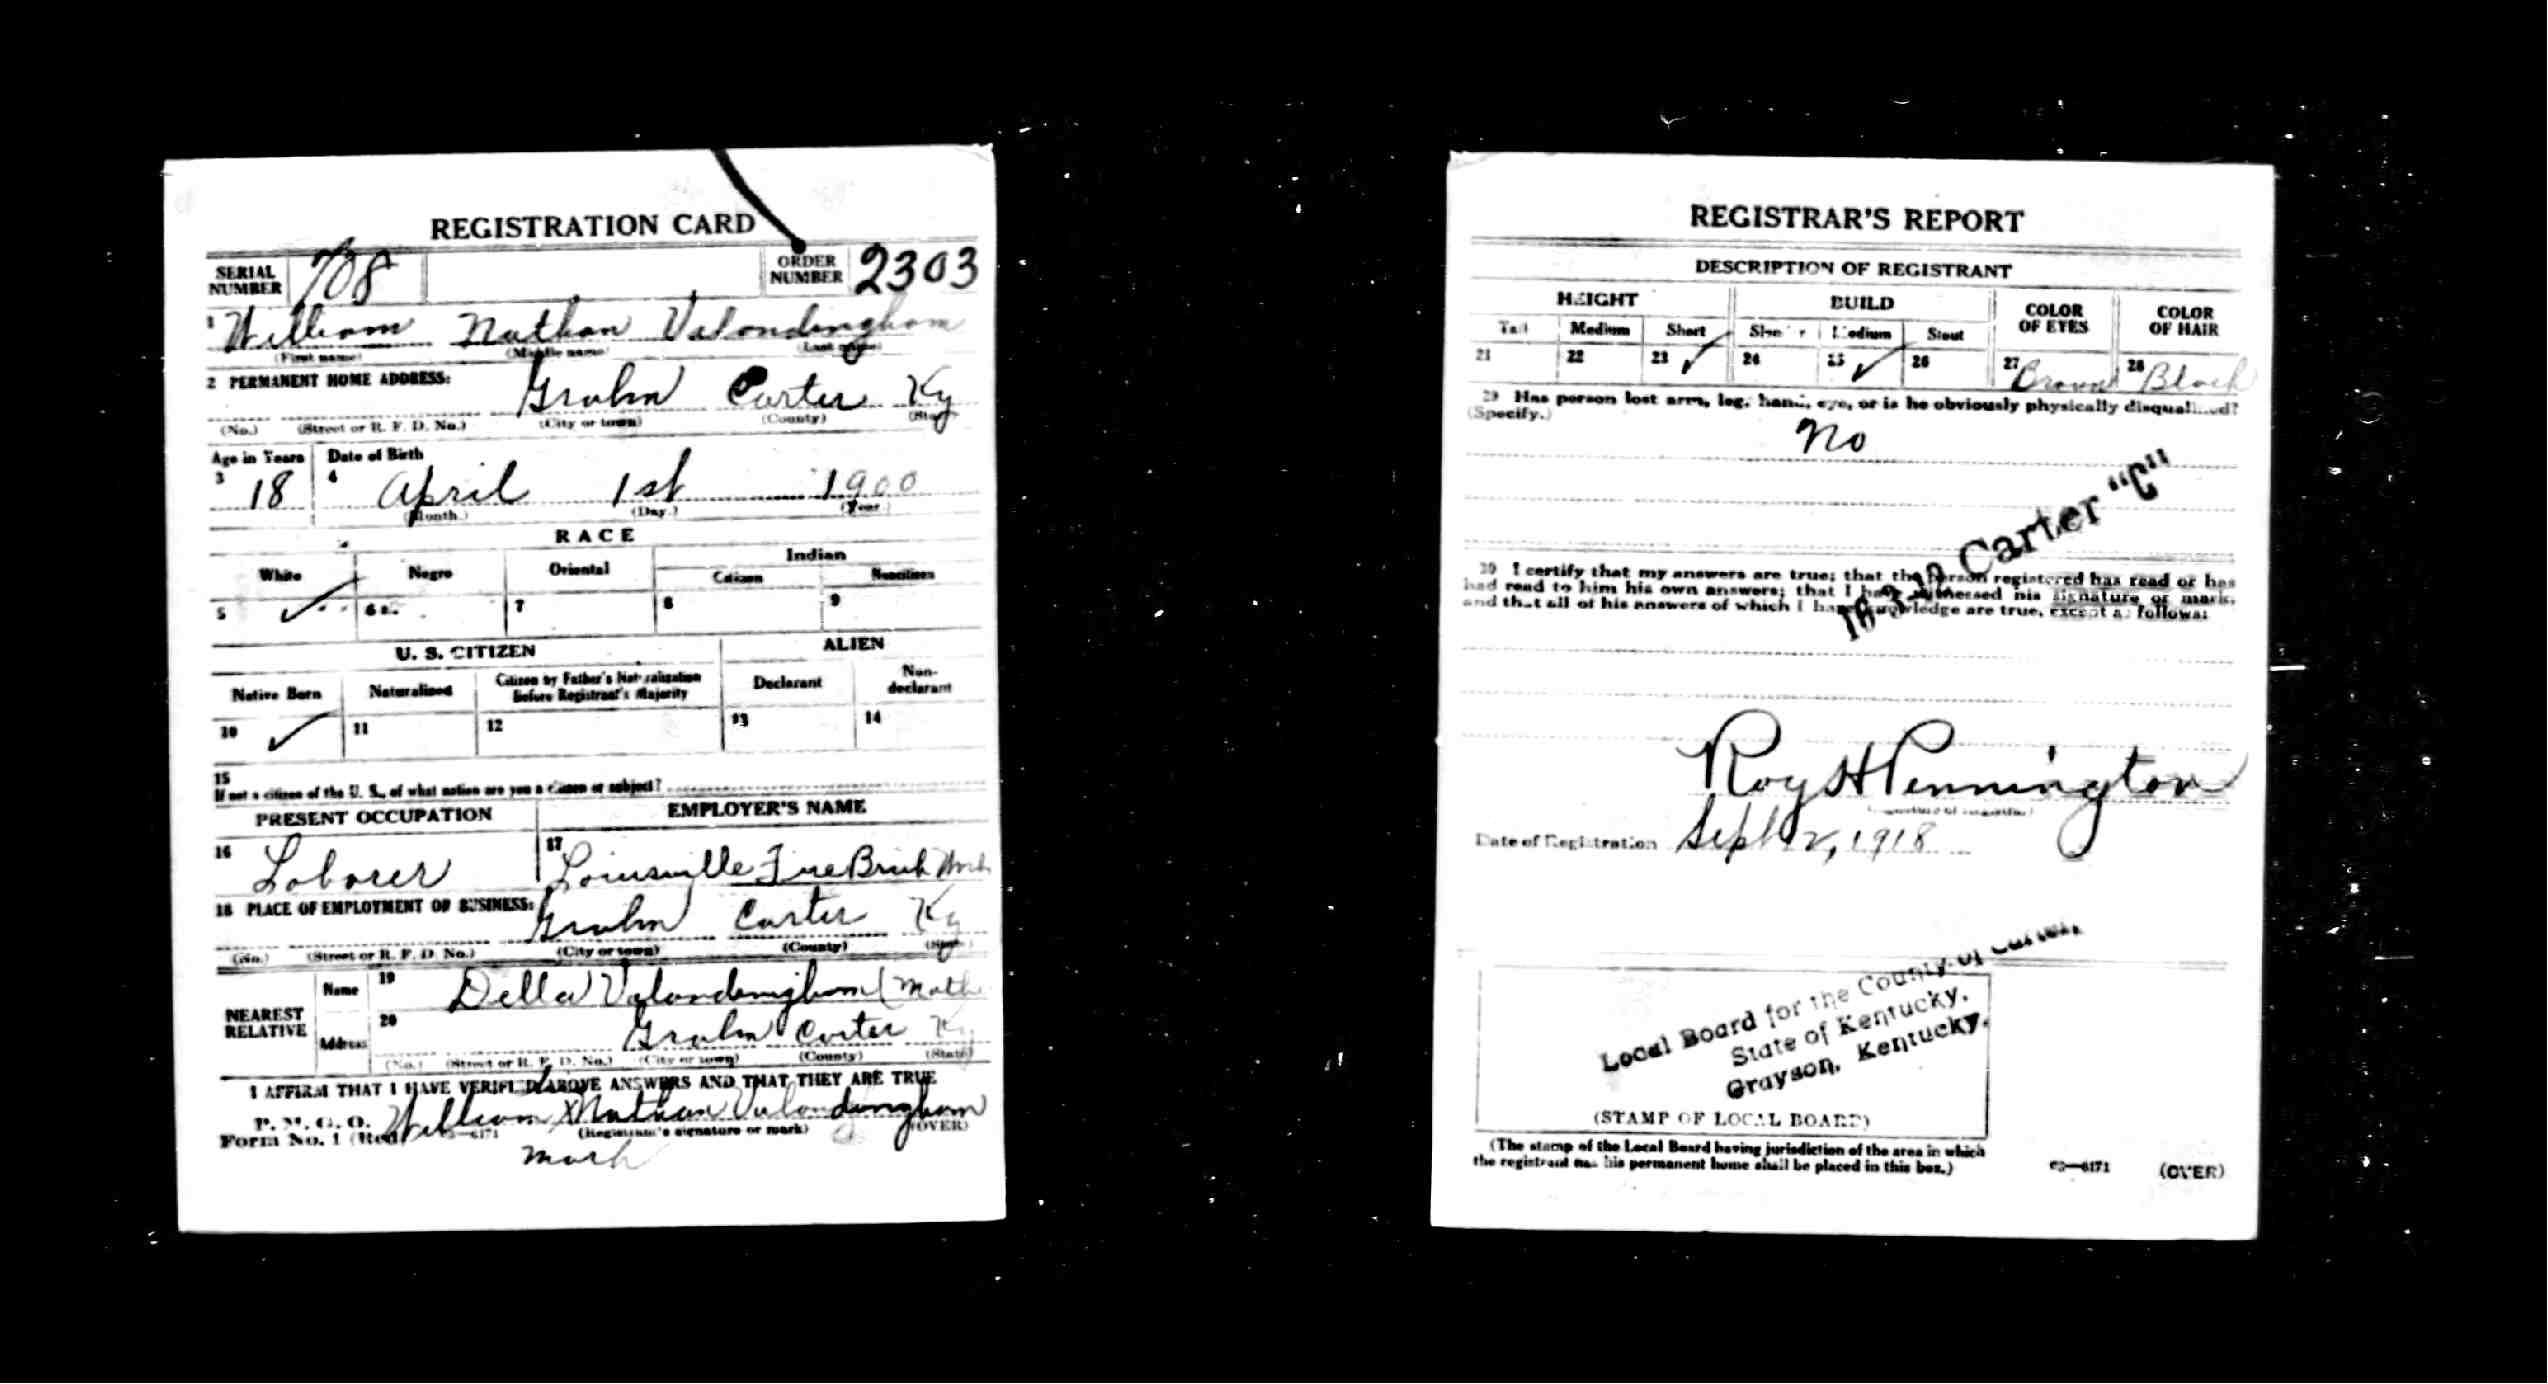 REGISTRATION CARD
SERIAL NUMBER 708 ORDER NUMBER 2303
1 William Nathan Valandingham
(First name) (Middle name) (Last name)
2 PERMANENT HOME ADDRESS:
Grahn Carter Ky
(No.) (Street or R. F. D. No.) (City or town) (County) (State)
Age in Years Date of Birth
3 18 4 April 1st 1900
(Month.) (Day.) (Year.)
RACE
White Negro Oriental Indian
Citizen Noncitizen
5 ✓ 6 7 8 9
U. S. CITIZEN ALIEN
Native Born Naturalized Citizen by Father's Naturalization Before Registrant's Majority Declarant Non-declarant
10 ✓ 11 12 13 14
15
If not a citizen of the U. S., of what nation are you a citizen or subject?
PRESENT OCCUPATION EMPLOYER'S NAME
16 Laborer 17 Louisville Fire Brick Work
18 PLACE OF EMPLOYMENT OR BUSINESS:
Grahn Carter Ky
(No.) (Street or R. F. D. No.) (City or town) (County) (State)
NEAREST RELATIVE
Name 19 Della Valandingham (Moth
Address 20 Grahn Carter Ky
(No.) (Street or R. F. D. No.) (City or town) (County) (State)
I AFFIRM THAT I HAVE VERIFIED ABOVE ANSWERS AND THAT THEY ARE TRUE
P. M. G. O.
Form No. 1 (Red) William X Nathan Valandingham
03—6171 (Registrant's signature or mark) (OVER)
mark
REGISTRAR'S REPORT
DESCRIPTION OF REGISTRANT
HEIGHT BUILD COLOR OF EYES COLOR OF HAIR
Tall Medium Short Slender Medium Stout
21 22 23 ✓ 24 25 ✓ 26 27 Brown 28 Black
29 Has person lost arm, leg, hand, eye, or is he obviously physically disqualified?
(Specify.)
No
16-3-12 Carter "C"
30 I certify that my answers are true; that the person registered has read or has
had read to him his own answers; that I have witnessed his signature or mark,
and that all of his answers of which I have knowledge are true, except as follows:
Roy H Pennington
(Signature of registrar)
Date of Registration Sept 12, 1918
Local Board for the County of Carter,
State of Kentucky,
Grayson, Kentucky.
(STAMP OF LOCAL BOARD)
(The stamp of the Local Board having jurisdiction of the area in which
the registrant has his permanent home shall be placed in this box.)
03—6171 (OVER)